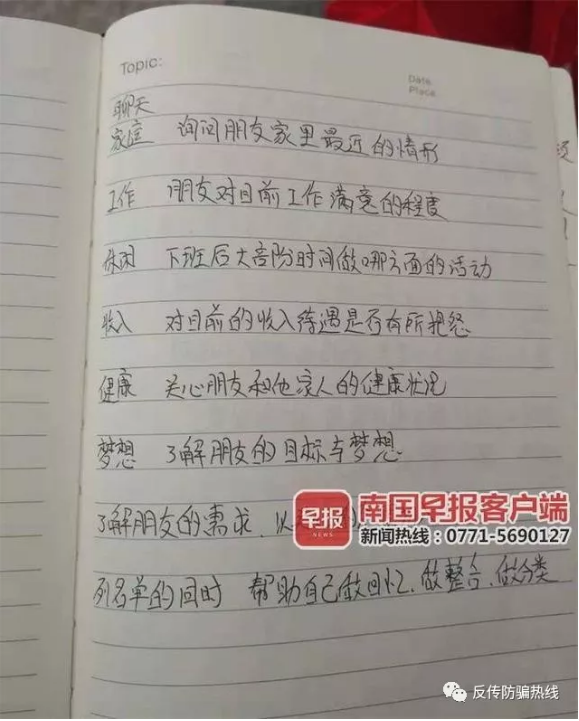 Topic:
Date
Place
聊天
家庭 询问朋友家里最近的情形
工作 朋友对目前工作满意的程度
休闲 下班后大部份时间做哪方面的活动
收入 对目前的收入待遇是否有所抱怨
健康 关心朋友和他家人的健康状况
梦想 了解朋友的目标与梦想
了解朋友的需求、以
早报
NEWS
南国早报客户端
新闻热线：0771-5690127
列名单的同时 帮助自己做回忆、做整合、做分类
反传防骗热线